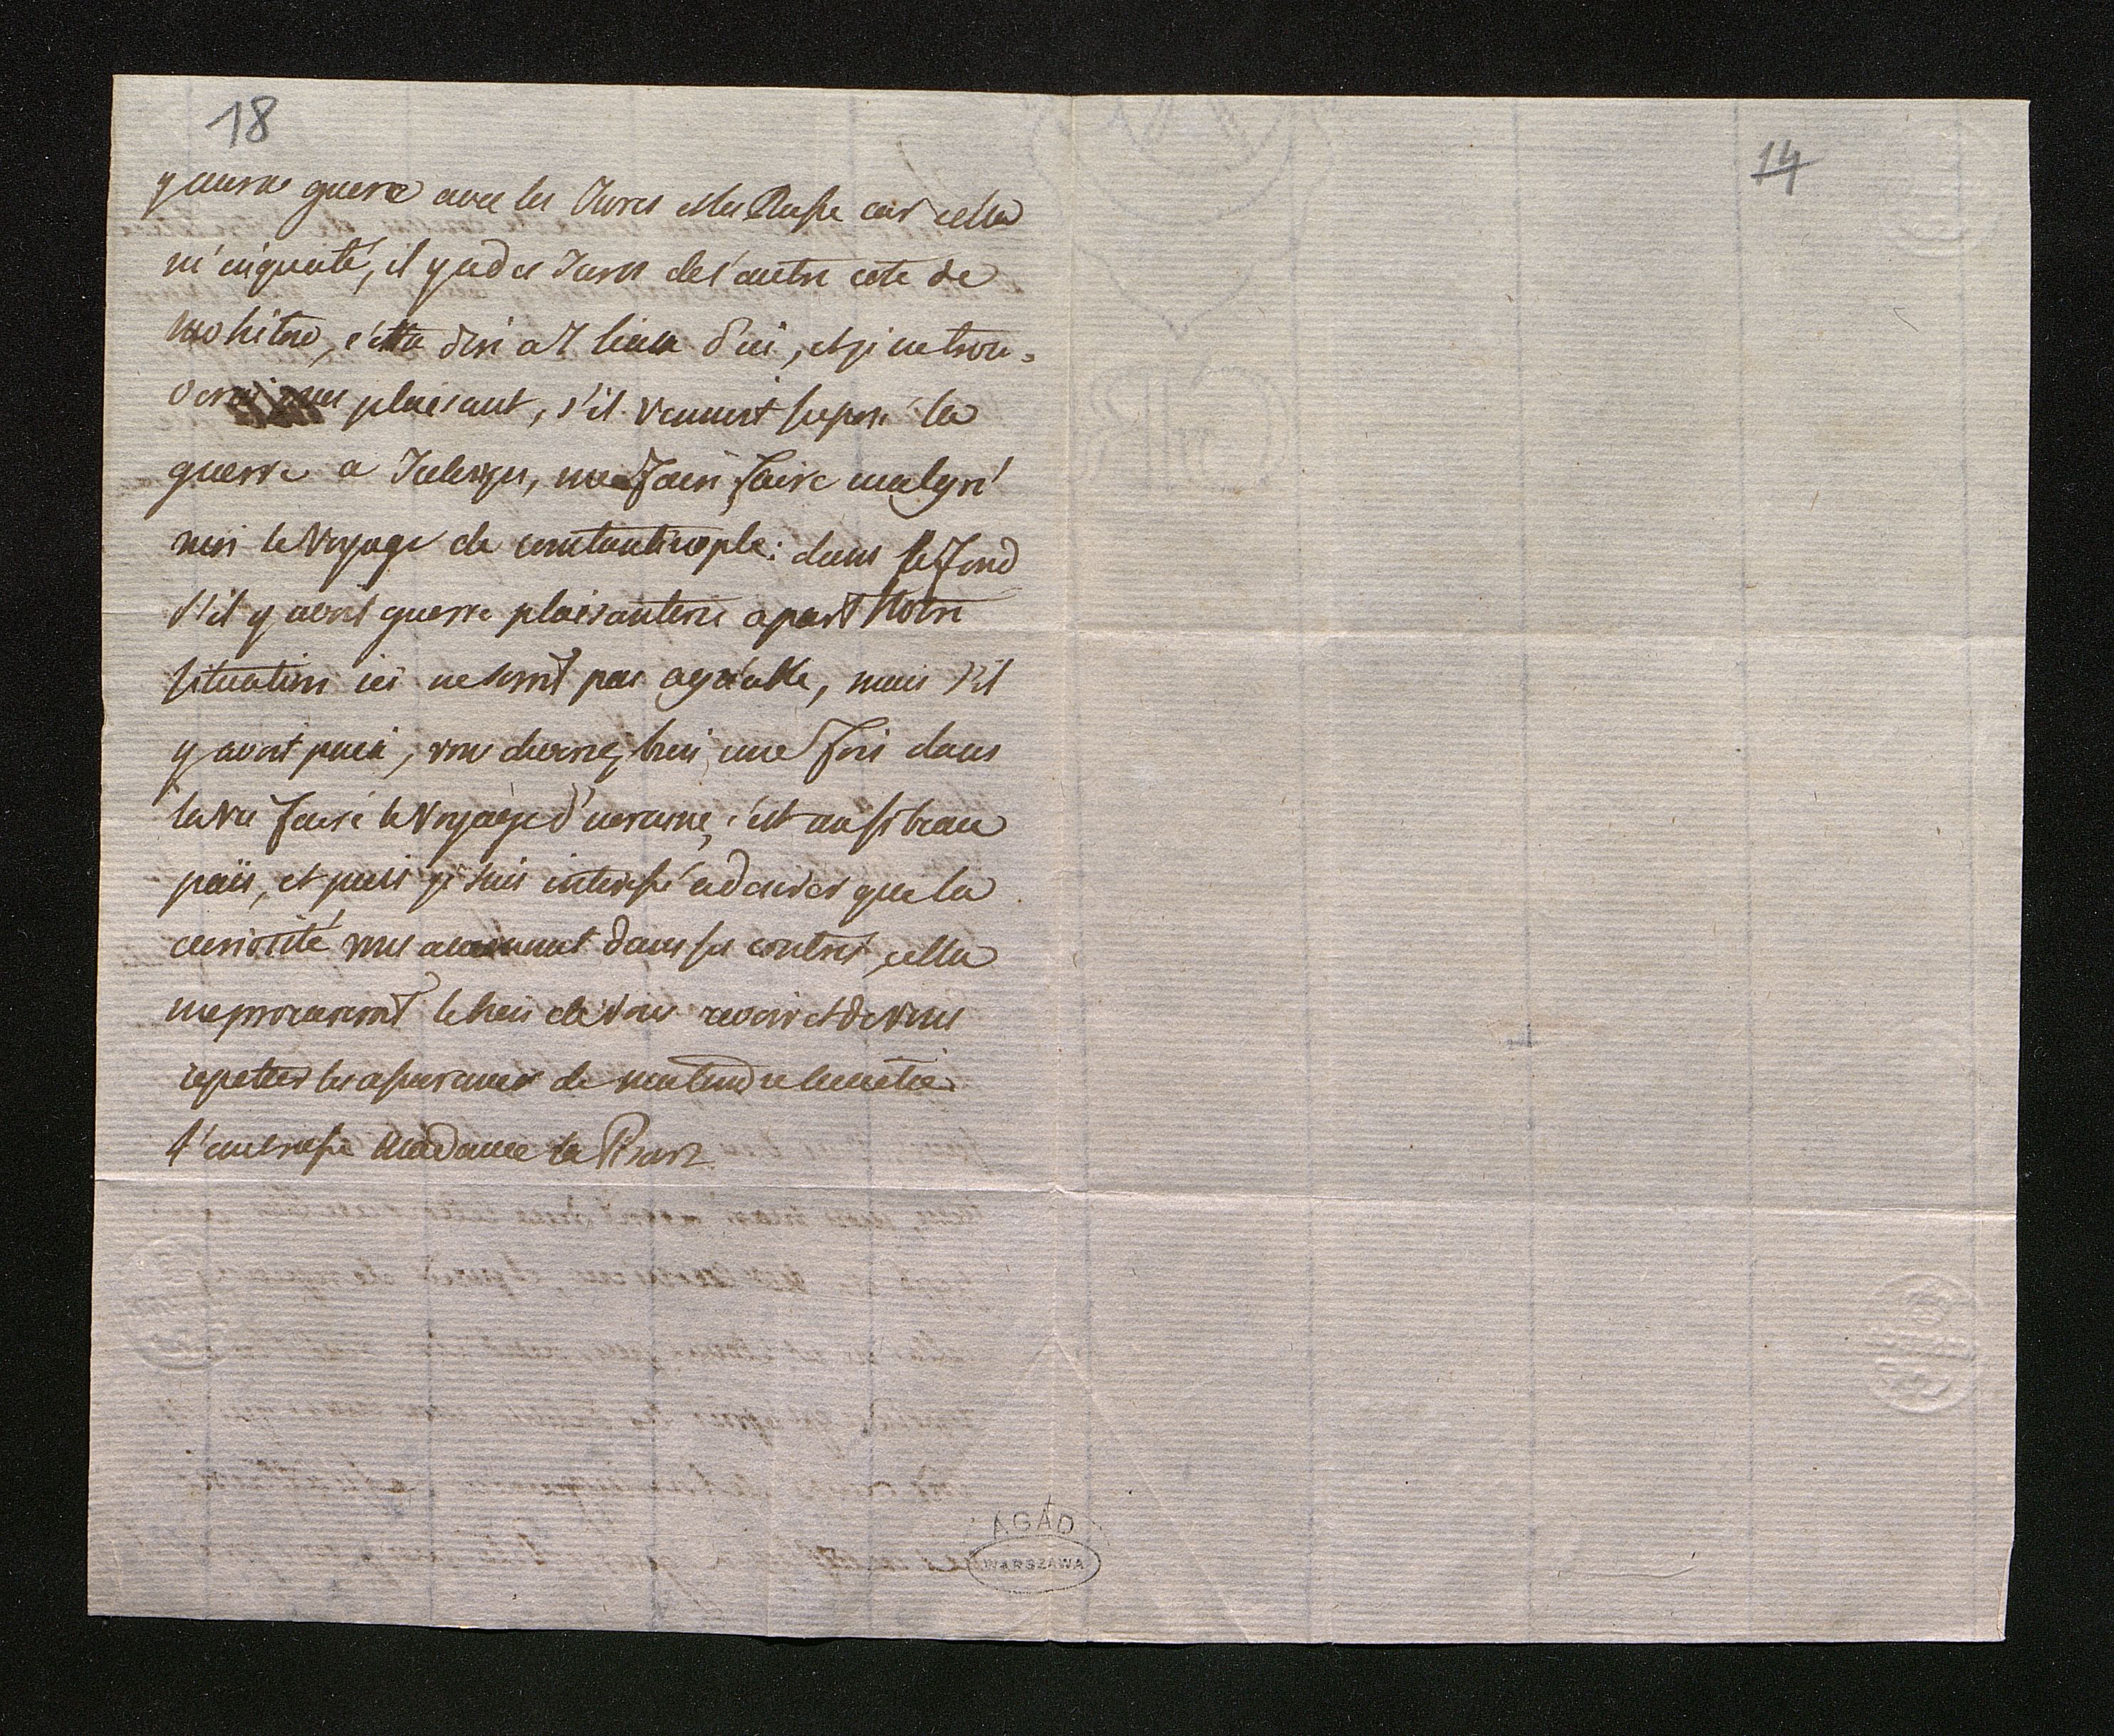 18
14
y aura guere avec les Turcs et les Russe car cella
m'inquieté, il y a des Turcs de l'autre coté de
Mohilow, s'etta diré a 7 lieux d'ici, et je ne trou-
verai pas plaisant, s'il venoient
guerre a me faire faire malgré
moi le Voyage de constantinople: dans le fond
s'il y avoit guerre plaisanterie apart Notre
situation ici ne seroit pas agréable, mais s'il
y avoit paix, vous devriez bien une fois dans
la vie faire le Voyage d'ucraine, c'est un si beau
païs, et puis je suis interessé a desirer que la
curiosité vous amennent dans ses contrés, cella
me procureroit le bien de vous revoir et de vous
repetter les assurances de ma tendre amitié
J'embrasse Madame la
AGAD
WARSZAWA